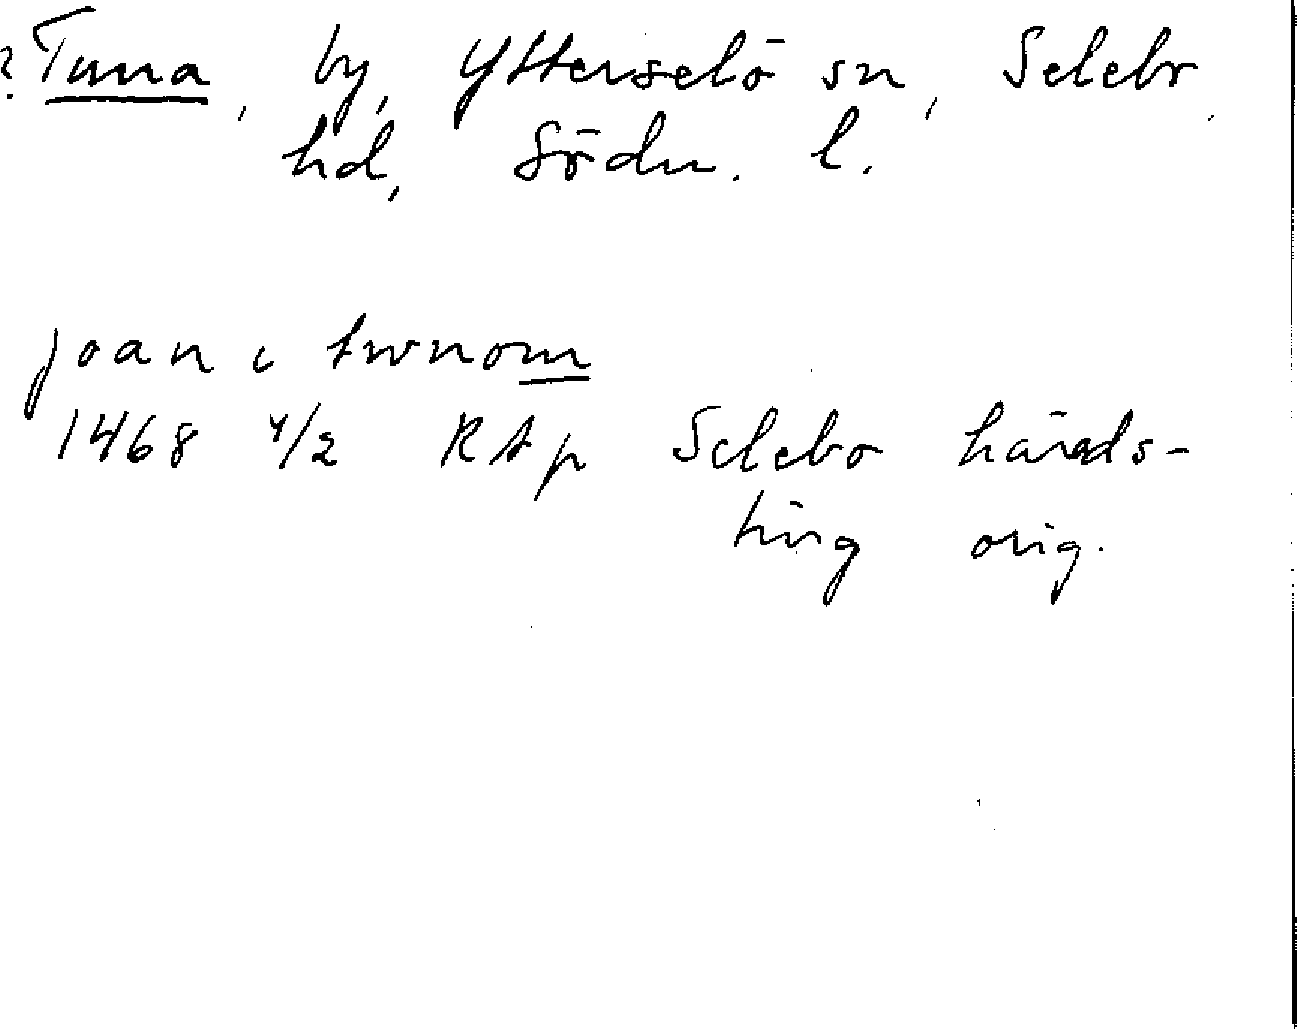 ? Tuna, by, Ytterselö sn, Selebo
hd, Södm. l.
joan i twnom
1468 4/2 RAp Selebo härads-
ting orig.